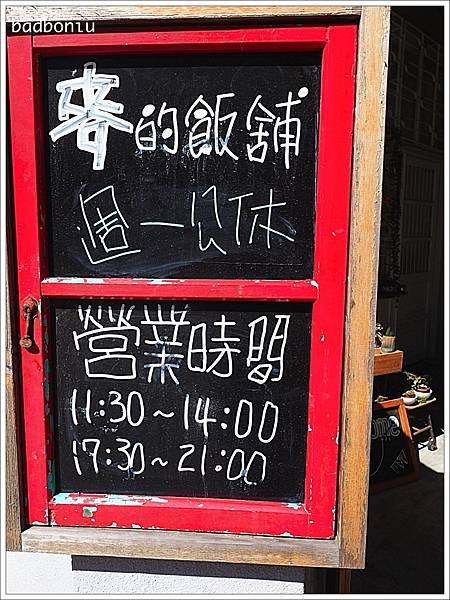 badboniu
麥的飯舖
週一公休
營業時間
11:30~14:00
17:30~21:00